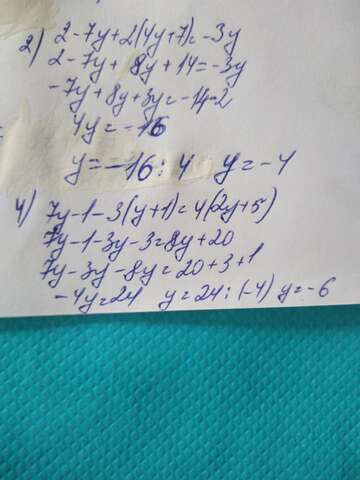 2) 2-7y+2(4y+7)=-3y
2-7y+8y+14=-3y
-7y+8y+3y=-14-2
4y=-16
y=-16:4 y=-4
4) 7y-1-3(y+1)=4(2y+5)
7y-1-3y-3=8y+20
7y-3y-8y=20+3+1
-4y=24 y=24:(-4) y=-6